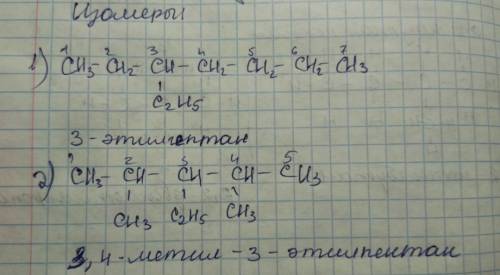 Изомеры
1) ¹CH₃-²CH₂-³CH-⁴CH₂-⁵CH₂-⁶CH₂-⁷CH₃
C₂H₅
3-этилгептан
2) ¹CH₃-²CH-³CH-⁴CH-⁵CH₃
CH₃ C₂H₅ CH₃
2,4-метил-3-этилпентан